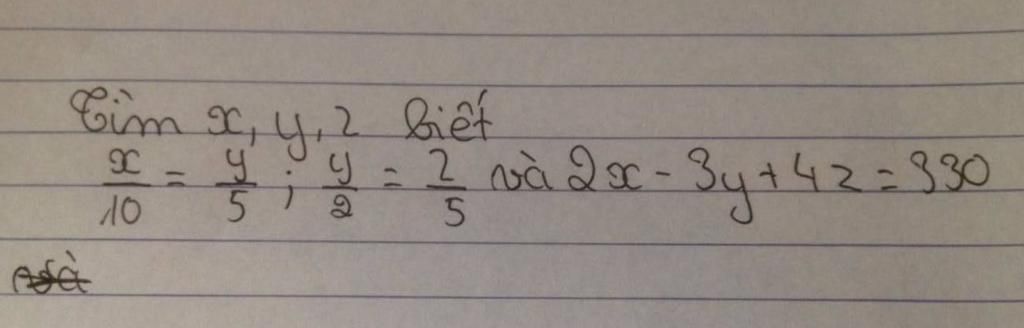 Tìm x, y, z biết
x/10 = y/5 ; y/2 = z/5 và 2x - 3y + 4z = 330